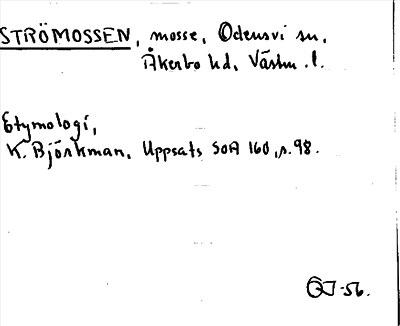 STRÖMOSSEN, mosse, Odensvi sn,
Åkerbo hd, Västm. l.
Etymologi,
K. Björkman, Uppsats SOA 160, s. 98.
-56.